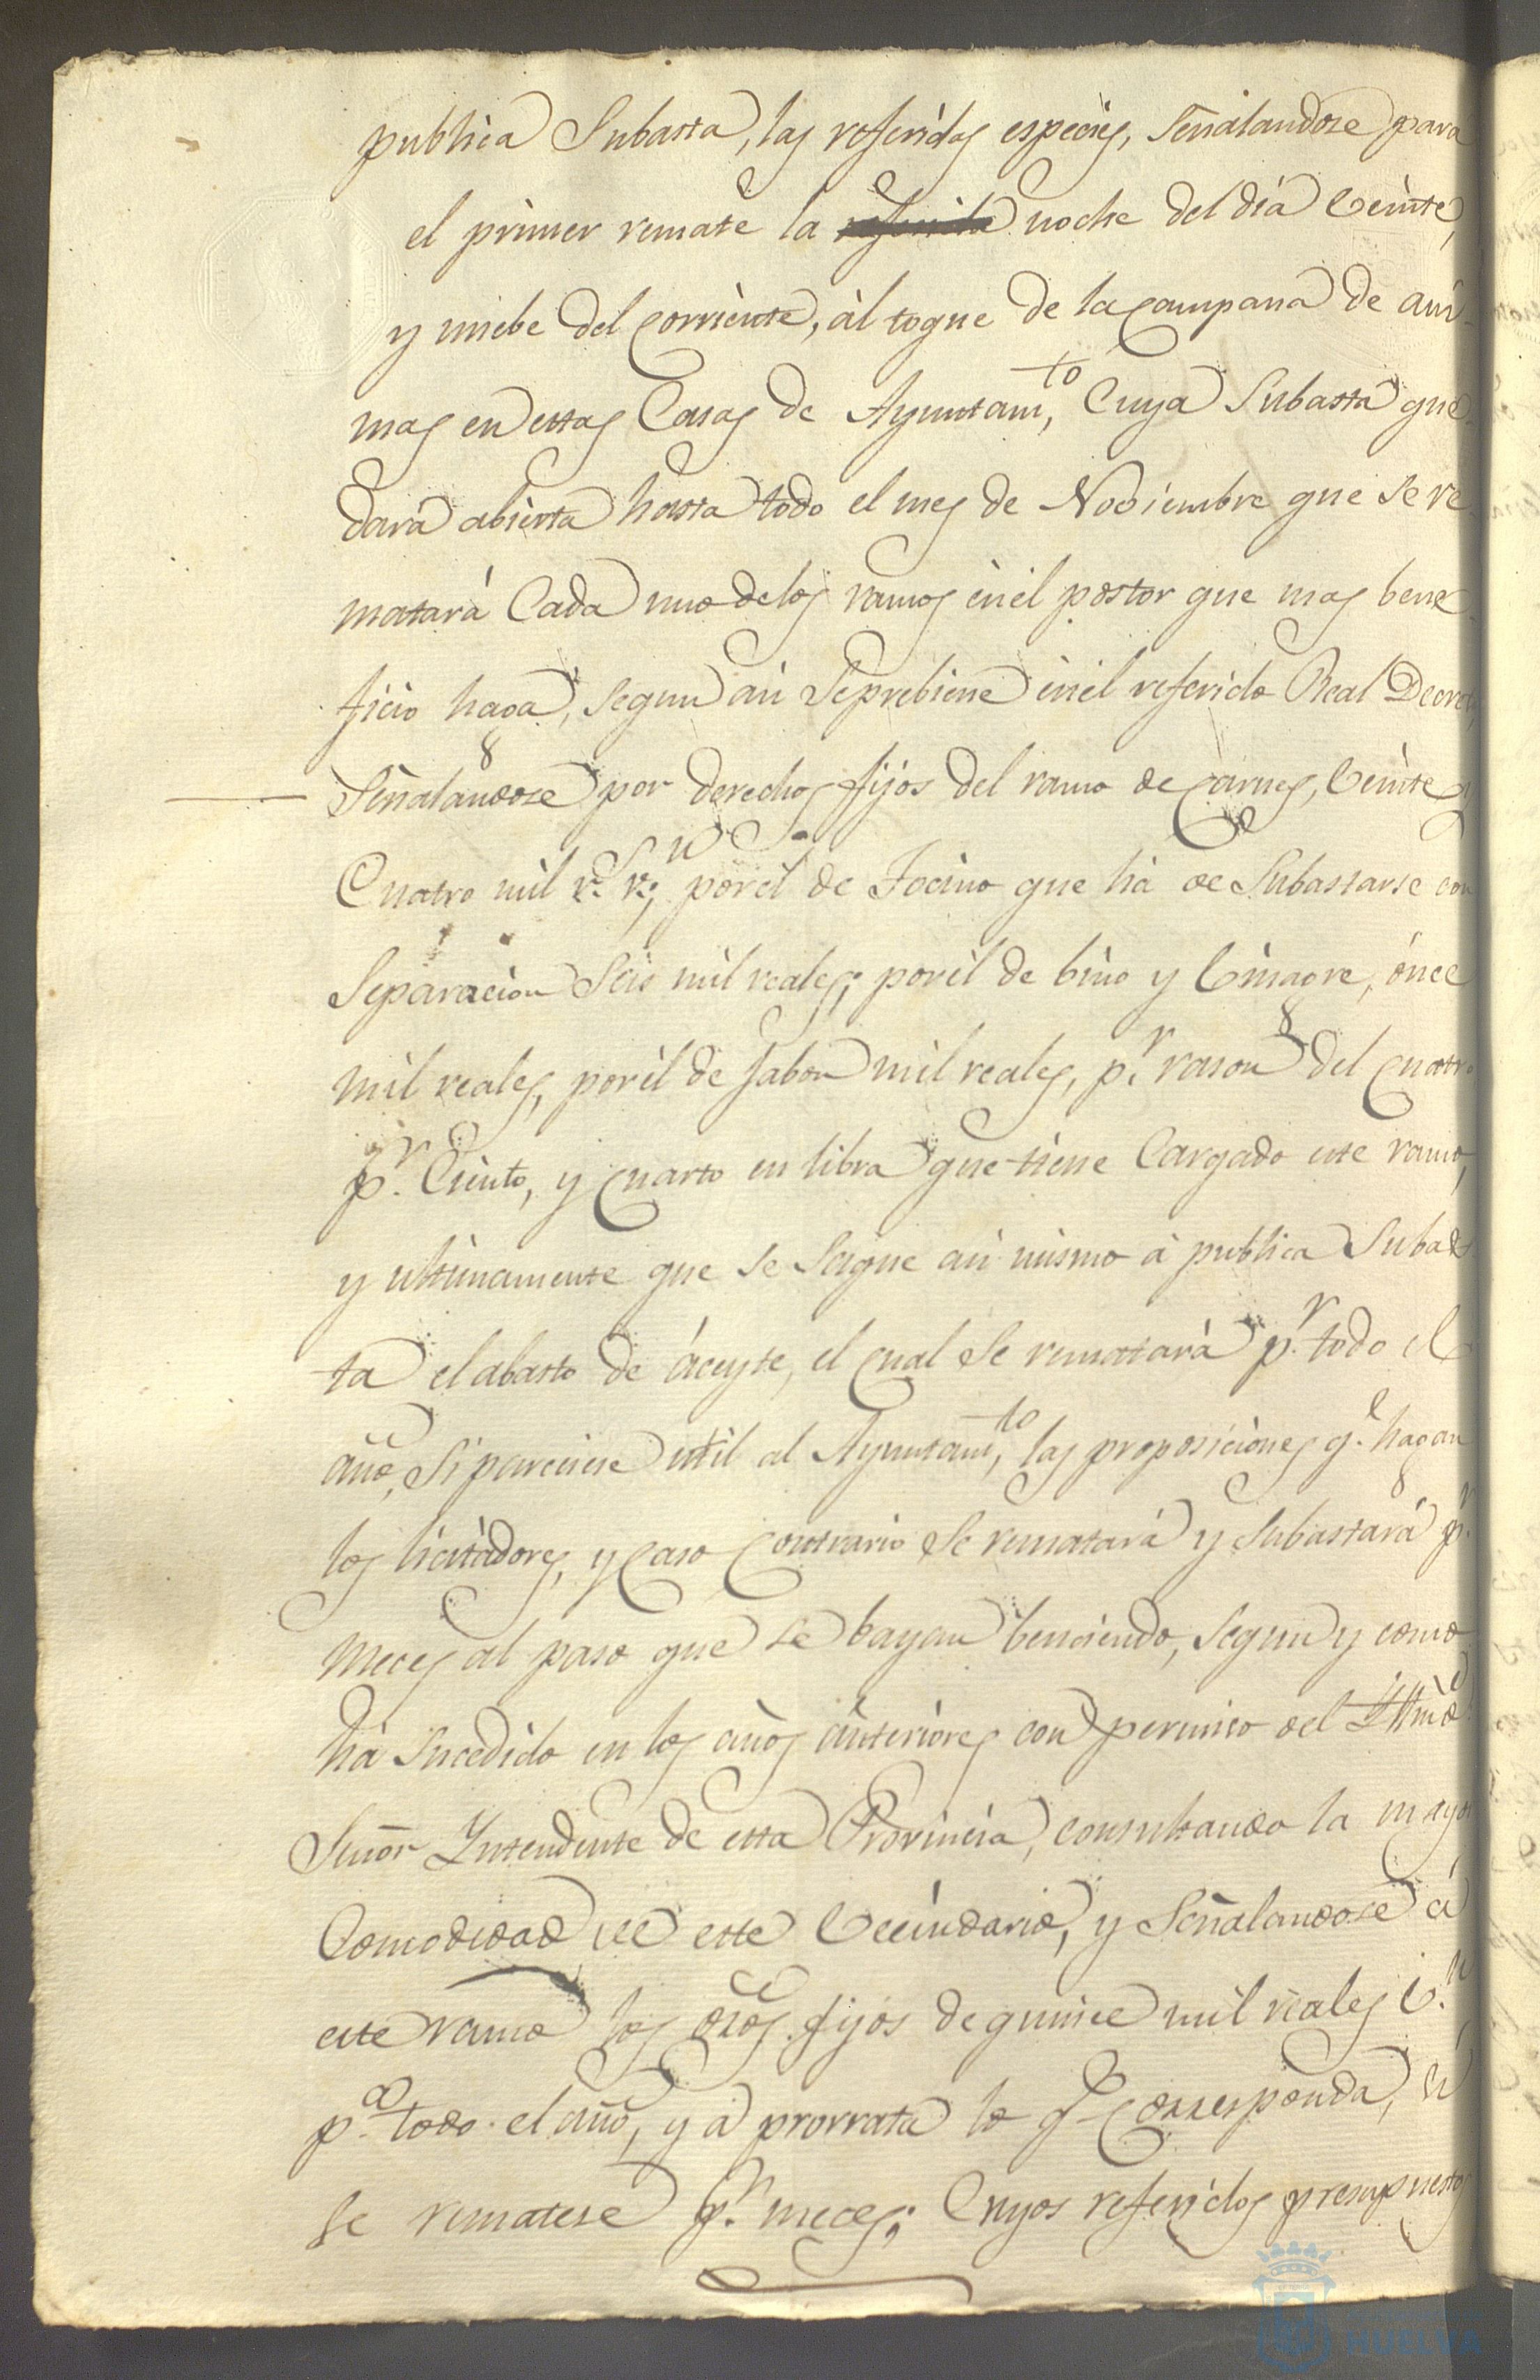 publica Subasta, las referidas especies, señalandose para
el primer remate la referida noche del dia Veinte,
y nuebe del Corriente, àl toque de la Campana de ani-
mas en estas Casas de Ayuntam.to, Cuya Subasta que-
dará abierta hasta todo el mes de Noviembre que se re-
matará Cada uno de los ramos en el postor que mas bene-
ficio haga, segun asi se prebiene en el referido Real Decreto,
Señalandose por derechos fijos del ramo de Carnes, Veinte y
Cuatro mil r.s v.n; por el de Tocino que há de Subastarse con
Separacion Seis mil reales; por el de bino y Vinagre, ónce
mil reales, por el de Jabon mil reales, p.r rason del Cuatro
p.r Ciento, y Cuarto en libra que tiene Cargado este ramo,
y ultimamente que se saque asi mismo á publica Subas-
ta el abasto de áceyte, el Cual se rematará p.r todo el
año, si pareciese util al Ayuntam.to, las proposiciones q.e hagan
los licitadores, y Caso Contrario se rematará y Subastará p.r
meces al paso que se bayan benciendo, segun y como
há Sucedido en los años ânteriores con permiso del Yllmô
Señor Yntendente de esta Provincia, consultando la mayor
Comodidad de este Vecindario, y Señalandose á
este ramo los dros fijos de quince mil reales v.n
p.a todo el año, y à prorrata lo q.e Corresponda, si
se rematese p.r meces; Cuyos referidos presupuestos
HUELVA